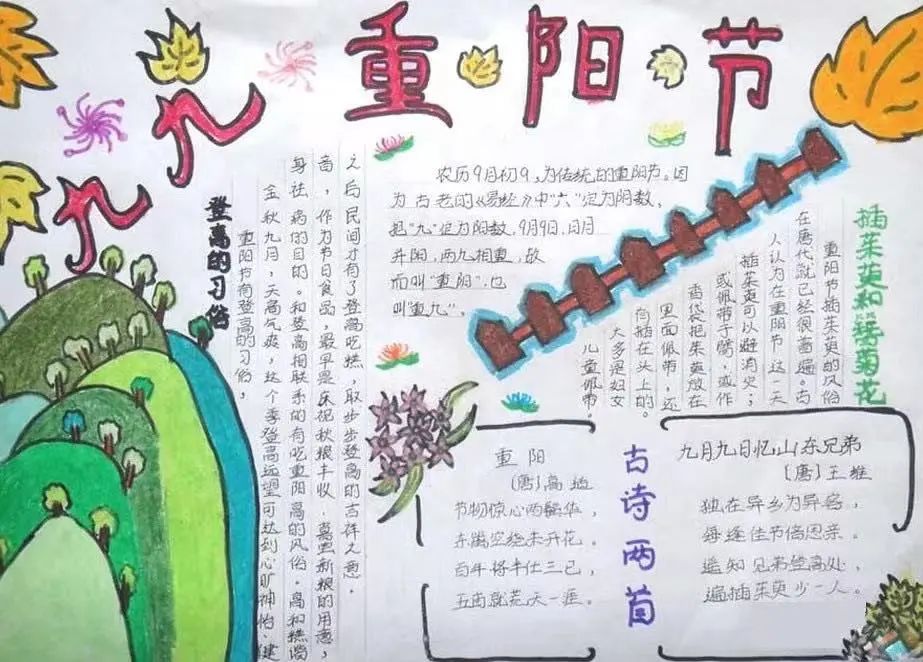 九九重阳节
农历9月初9,为传统的重阳节。因
为古老的《易经》中“六”定为阴数,
把“九”定为阳数,9月9日,日月
并阳,两九相重,故
而叫“重阳”,也
叫“重九”。
登高的习俗
重阳节有登高的习俗,
金秋九月,天高气爽,这个季登高远望可达到心旷神怡、健
身祛病的目的。和登高相联系的有吃重阳高的风俗。高和糕谐
音,作为节日食品,最早是庆祝秋粮丰收、喜尝新粮的用意,
之后民间才有了登高吃糕,取步步登高的吉祥之意。
插茱萸和簪菊花
重阳节插茱萸的风俗
在唐代就已经很普遍。古
人认为在重阳节这一天
插茱萸可以避消灾;
或佩带于臂,或作
香袋把茱萸放在
里面佩带,还
有插在头上的。
大多是妇女
儿童佩带。
古诗两首
重阳
(唐)高适
节物惊心两鬓华,
东篱空绕未开花。
百年将半仕三已,
五亩就荒天一涯。
九月九日忆山东兄弟
(唐)王维
独在异乡为异客,
每逢佳节倍思亲。
遥知兄弟登高处,
遍插茱萸少一人。